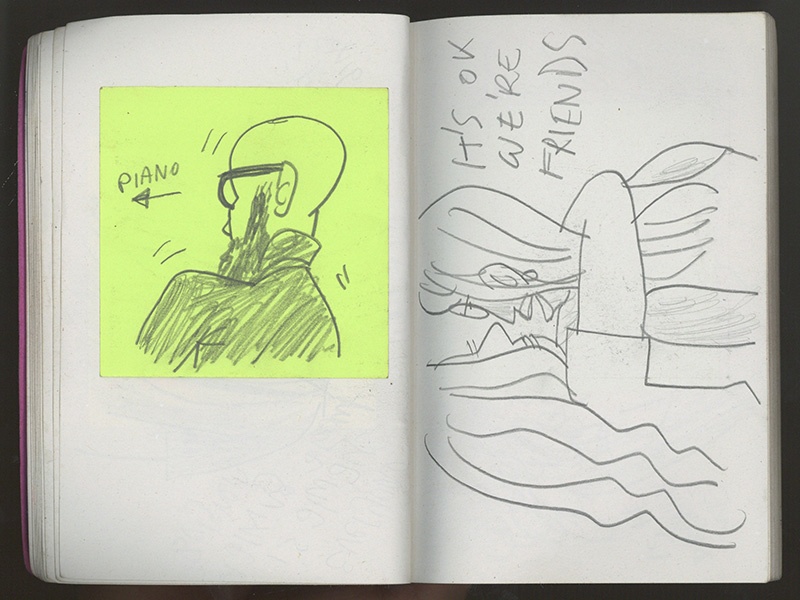 PIANO
IT'S OK
WE'RE
FRIENDS